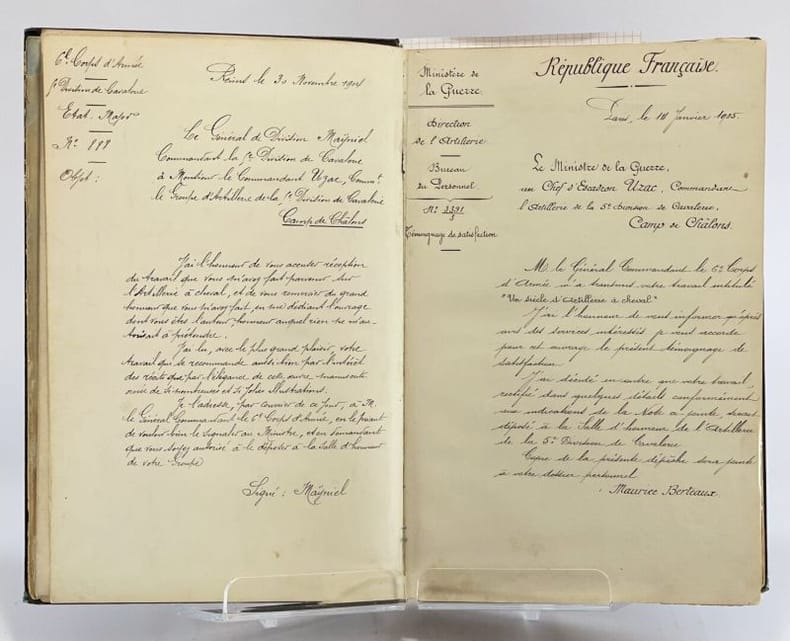 6e Corps d'Armée
5e Division de Cavalerie
Etat Major
No 888
Objet :
Reims le 30 Novembre 1904
Le Général de Division Mayniel
Commandant la 5e Division de Cavalerie
à Monsieur le Commandant Uzac, Commt
le Groupe d'Artillerie de la 5e Division de Cavalerie
Camp de Châlons
J'ai l'honneur de vous accuser réception
du travail que vous m'avez fait parvenir sur
l'Artillerie à cheval, et de vous remercier du grand
honneur que vous m'avez fait, en me dédiant l'ouvrage
dont vous êtes l'auteur, honneur auquel rien ne m'au-
torisait à prétendre.
J'ai lu, avec le plus grand plaisir, votre
travail qui se recommande aussi bien par l'intérêt
des récits que par l'élégance de cette œuvre manuscrite
ornée de si nombreuses et si jolies illustrations.
Je l'adresse, par courrier de ce jour, à M.
le Général Commandant le 6e Corps d'Armée, en le priant
de vouloir bien le signaler au Ministre, et en demandant
que vous soyez autorisé à le déposer à la Salle d'honneur
de votre Groupe
Signé : Mayniel
Ministère de
la Guerre
Direction
de l'Artillerie
Bureau
du Personnel
No 2291
Témoignage de satisfaction
République Française.
Paris, le 14 Janvier 1905.
Le Ministre de la Guerre,
au Chef d'Escadron Uzac, Commandant
l'Artillerie de la 5e Division de Cavalerie,
Camp de Châlons.
M. le Général Commandant le 6e Corps
d'Armée m'a transmis votre travail intitulé
"Un siècle d'Artillerie à cheval"
J'ai l'honneur de vous informer qu'après
avis des services intéressés je vous accorde
pour cet ouvrage le présent témoignage de
satisfaction.
J'ai décidé en outre que votre travail,
rectifié dans quelques détails conformément
aux indications de la Note ci jointe, serait
déposé à la Salle d'honneur de l'Artillerie
de la 5e Division de Cavalerie
Copie de la présente dépêche sera jointe
à votre dossier personnel
Maurice Berteaux